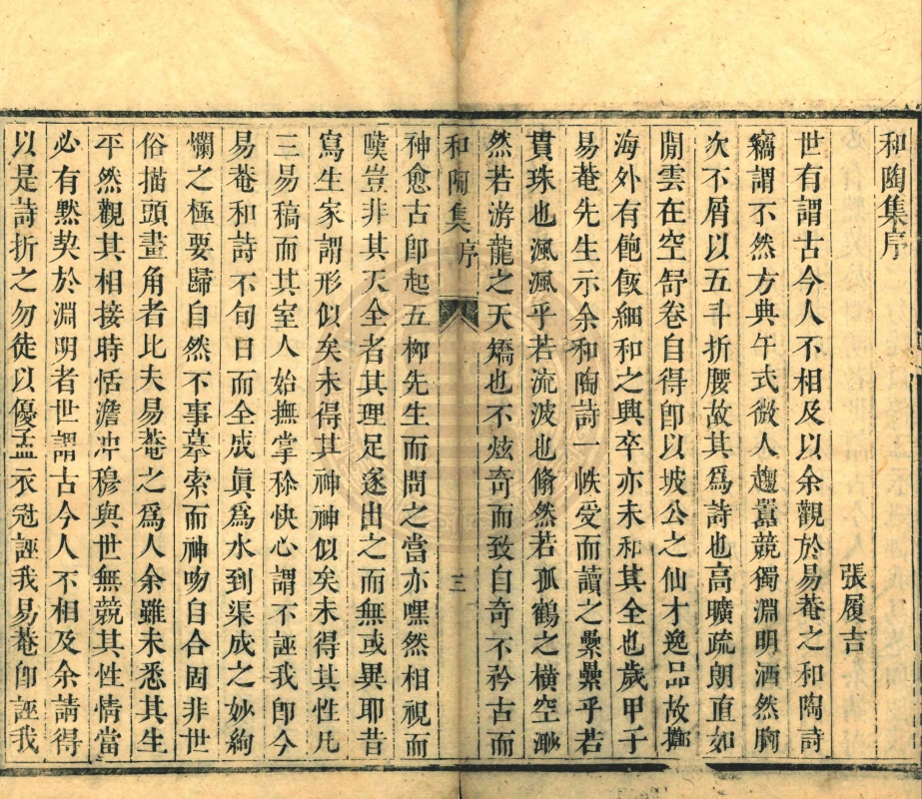 和陶集序
張履吉
世有謂古今人不相及以余觀於易菴之和陶詩
竊謂不然方典午式微人趨囂競獨淵明洒然胸
次不屑以五斗折腰故其爲詩也高曠疏朗直如
閒雲在空舒卷自得卽以坡公之仙才逸品故擲
海外有飽飯細和之典卒亦未和其全也歲甲子
易菴先生示余和陶詩一帙受而讀之纍纍乎若
貫珠也渢渢乎若流波也翛然若孤鶴之橫空渺
然若游龍之天矯也不炫奇而致自奇不矜古而
和陶集 序 三
神愈古卽起五柳先生而問之當亦嘿然相視而
嘆豈非其天全者其理足遂出之而無或異耶昔
寫生家謂形似矣未得其神神似矣未得其性凡
三易稿而其室人始撫掌稱快心謂不誣我卽今
易菴和詩不旬日而全成眞爲水到渠成之妙絢
爛之極要歸自然不事摹索而神吻自合固非世
俗描頭畫角者比夫易菴之爲人余雖未悉其生
平然觀其相接時恬澹冲穆與世無競其性情當
必有默契於淵明者世謂古今人不相及余請得
以是詩折之勿徒以優孟衣冠誣我易菴卽誣我